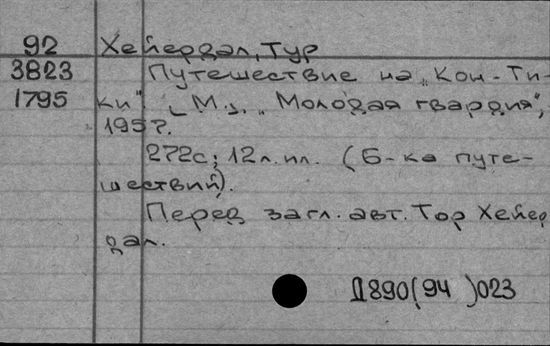 92 Хейердал, Тур
3823 Путешествие на „Кон-Ти-
1795 ки". [М.], „Молодая гвардия",
1957.
272с; 12л.ил. (Б-ка путе-
шествий).
Перед загл. авт. Тор Хейер
дал.
Д890(94 )023